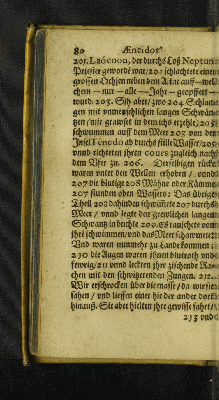 80 Æneidos
201. Laocoon, der durchs Loß Neptuni
Priester geworde war/202 schlachtete einen
grossen Ochsen neben dem Altar auff—wel-
chem—nur—alle—Jahr—geopffert—
wurd. 203. Sih aber/zwo 204 Schlan
gen mit unmenschlichen langen Schwän
zen/mir grawst in dem ichs erzehl/203
schwummen auff dem Meer 205 von der
Insel Tenedo ab durchs stille Wasser/205
unnd richteten ihren cours zugleich nach
dem Ufer zu. 206. Derselbigen rücke
waren unter den Wellen erhoben/unnd
207 die blutige 208 Mähne oder Kämme
207 stunden oben Wassers: Das übrige
Theil 208 dahinden schwummte 207 durchs
Meer/unnd legte den grewlichen langen
Schwanz in buchte 209. Es rauschete von
ihrē schwimmen/und daß Meer schaumete:
Und waren nunmehr zu Lande kommen:
210 die Augen waren ihnen blutroth und
fewrig/211 vnnd leckten ihre zischende Ra-
chen mit den schwitzerenden Zungen. 212.
Wir erschrocken über die masse/da wir sie
sahen/und lieffen einer hie der ander dort
hinauß. Sie aber hielten ihre gewisse fahrt/
213 und